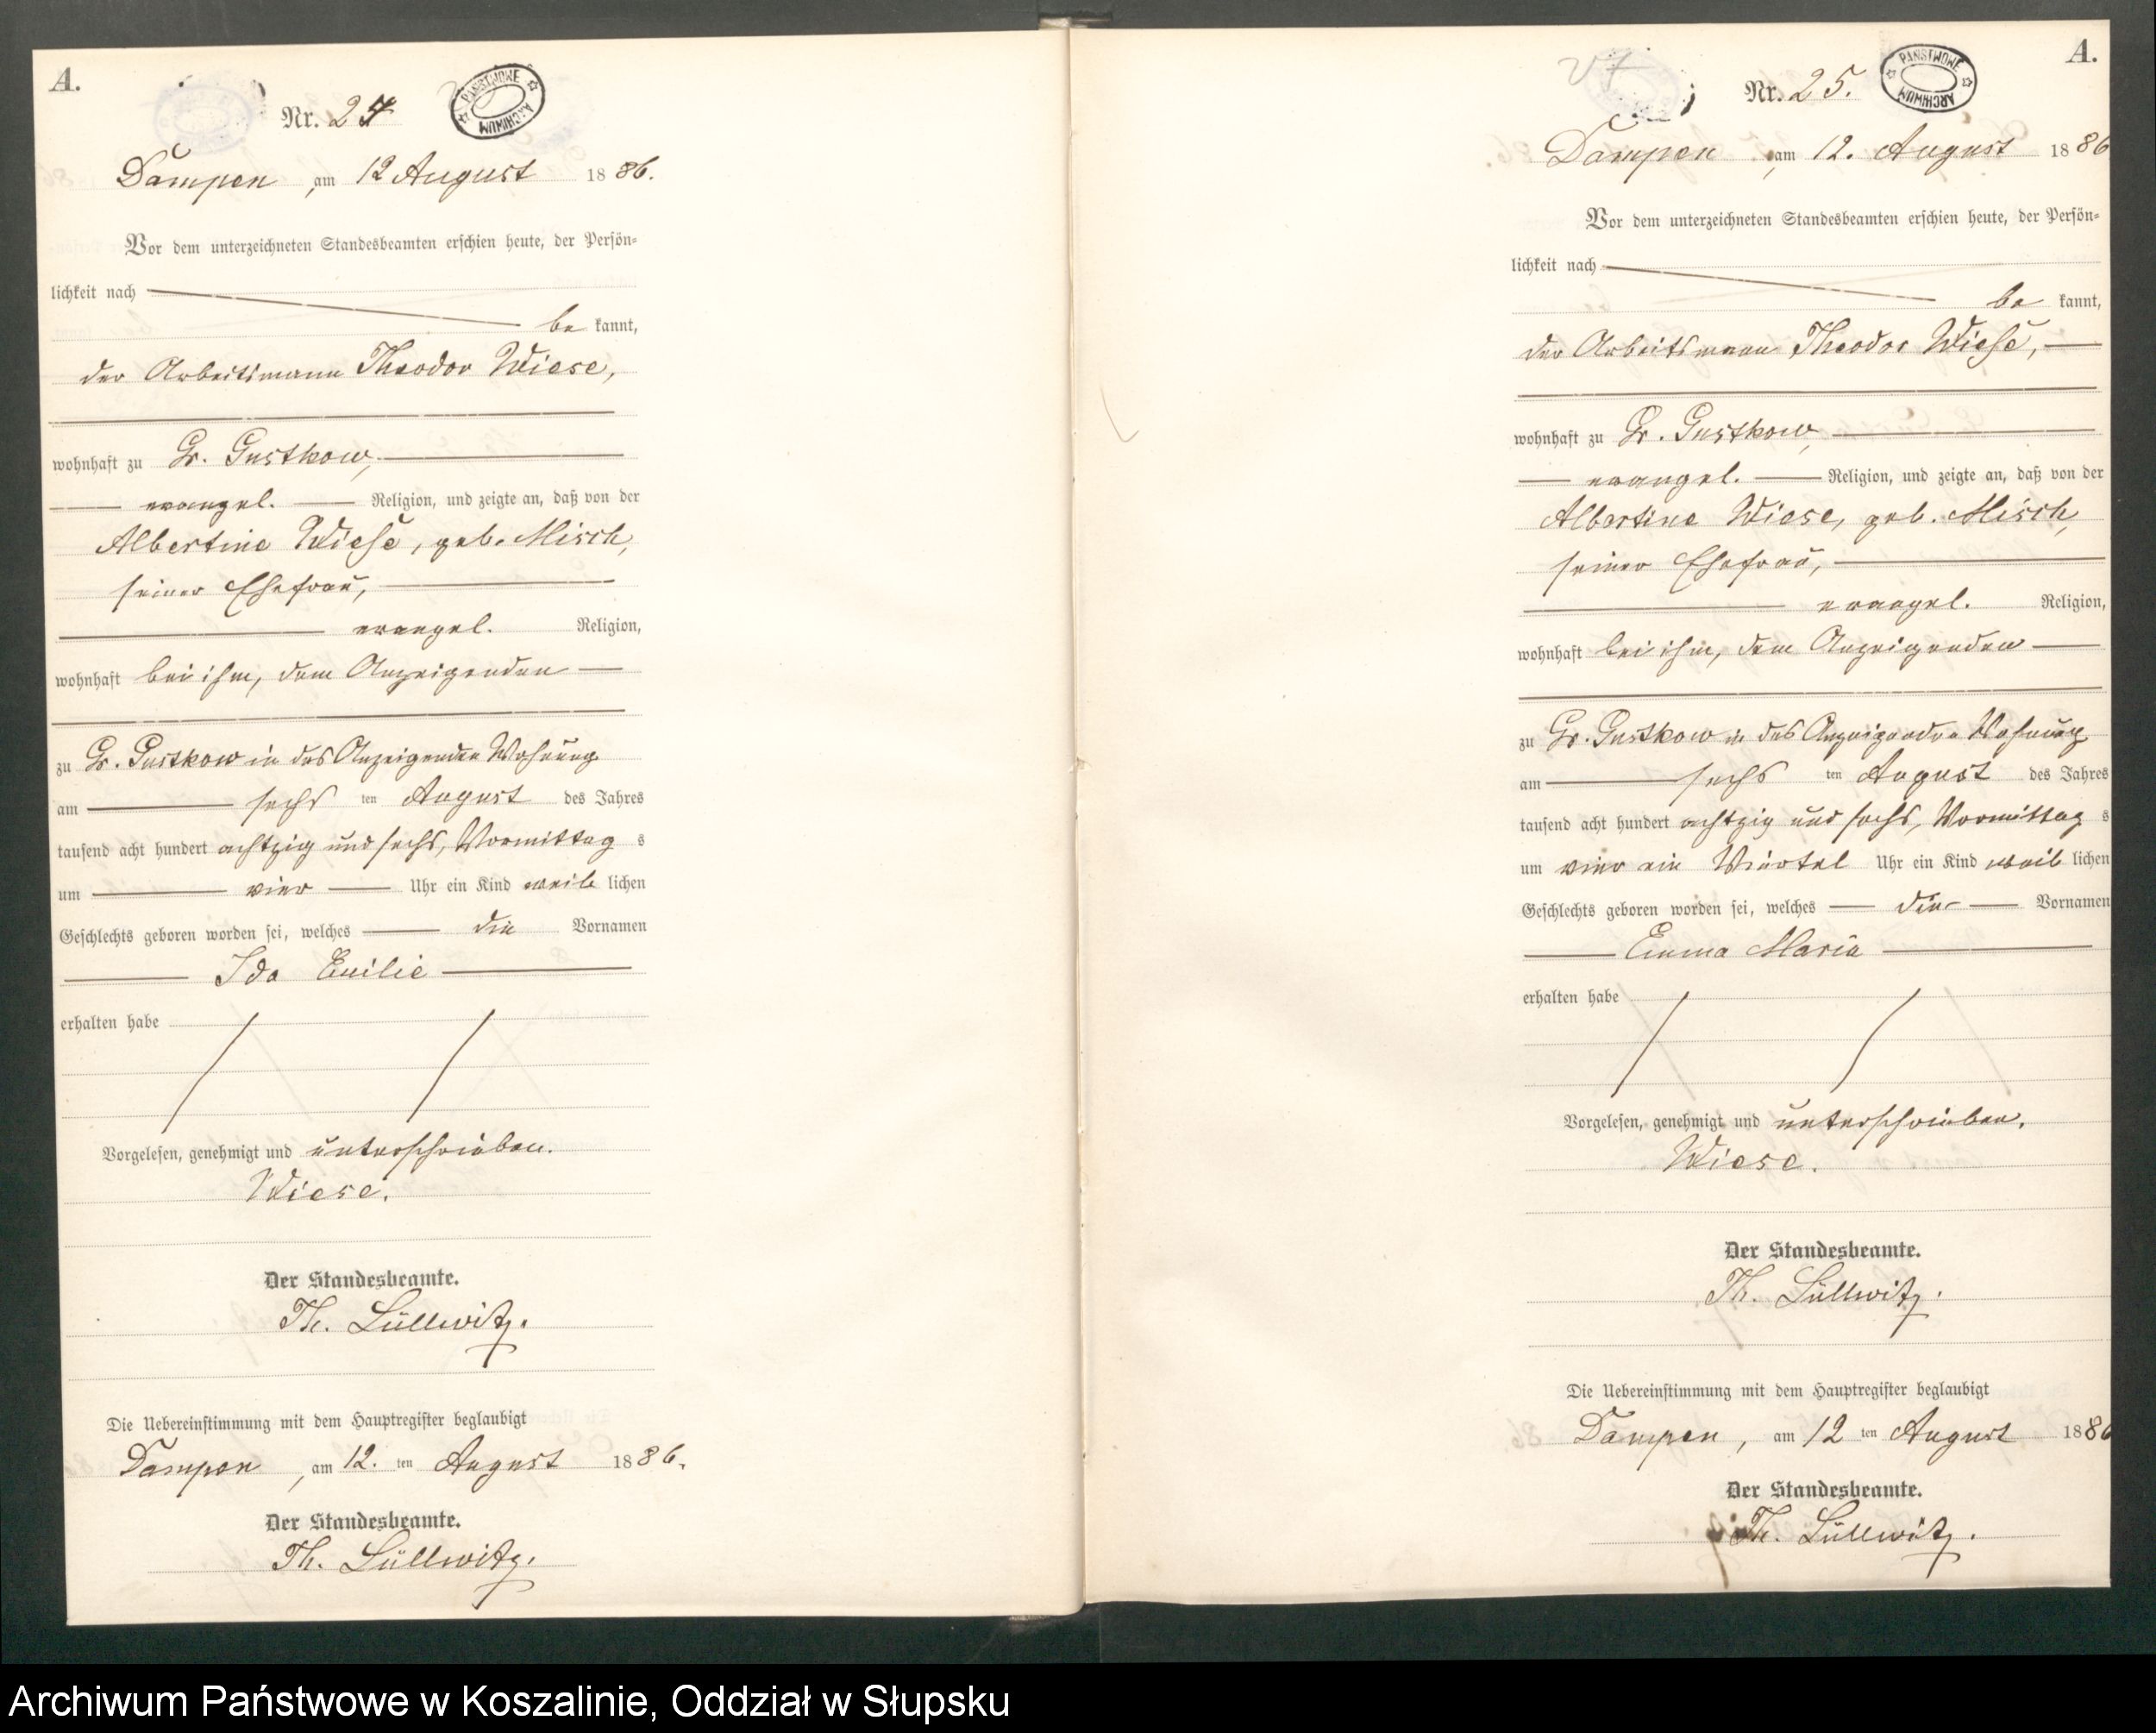 A.
Nr. 24
PAŃSTWOWE ARCHIWUM
Dampen, am 12 August 1886.
Vor dem unterzeichneten Standesbeamten erschien heute, der Persön-
lichkeit nach
bekannt,
der Arbeitsmann Theodor Wiese,
wohnhaft zu Gr. Gustkow,
evangel. Religion, und zeigte an, daß von der
Albertine Wiese, geb. Misch,
seiner Ehefrau,
evangel. Religion,
wohnhaft bei ihm, dem Anzeigenden
zu Gr. Gustkow in des Anzeigenden Wohnung
am sechsten August des Jahres
tausend acht hundert achtzig und sechs, Vormittags
um vier Uhr ein Kind weiblichen
Geschlechts geboren worden sei, welches die Vornamen
Ida Emilie
erhalten habe
Vorgelesen, genehmigt und unterschrieben.
Wiese.
Der Standesbeamte.
Th. Lüllwitz.
Die Uebereinstimmung mit dem Hauptregister beglaubigt
Dampen, am 12. ten August 1886.
Der Standesbeamte.
Th. Lüllwitz.
A.
Nr. 25.
PAŃSTWOWE ARCHIWUM
Dampen, am 12. August 1886
Vor dem unterzeichneten Standesbeamten erschien heute, der Persön-
lichkeit nach
bekannt,
der Arbeitsmann Theodor Wiese,
wohnhaft zu Gr. Gustkow,
evangel. Religion, und zeigte an, daß von der
Albertine Wiese, geb. Misch,
seiner Ehefrau,
evangel. Religion,
wohnhaft bei ihm, dem Anzeigenden
zu Gr. Gustkow in des Anzeigenden Wohnung
am sechsten August des Jahres
tausend acht hundert achtzig und sechs, Vormittags
um vier ein Viertel Uhr ein Kind weiblichen
Geschlechts geboren worden sei, welches die Vornamen
Emma Maria
erhalten habe
Vorgelesen, genehmigt und unterschrieben.
Wiese.
Der Standesbeamte.
Th. Lüllwitz.
Die Uebereinstimmung mit dem Hauptregister beglaubigt
Dampen, am 12 ten August 1886
Der Standesbeamte.
Th. Lüllwitz.
Archiwum Państwowe w Koszalinie, Oddział w Słupsku